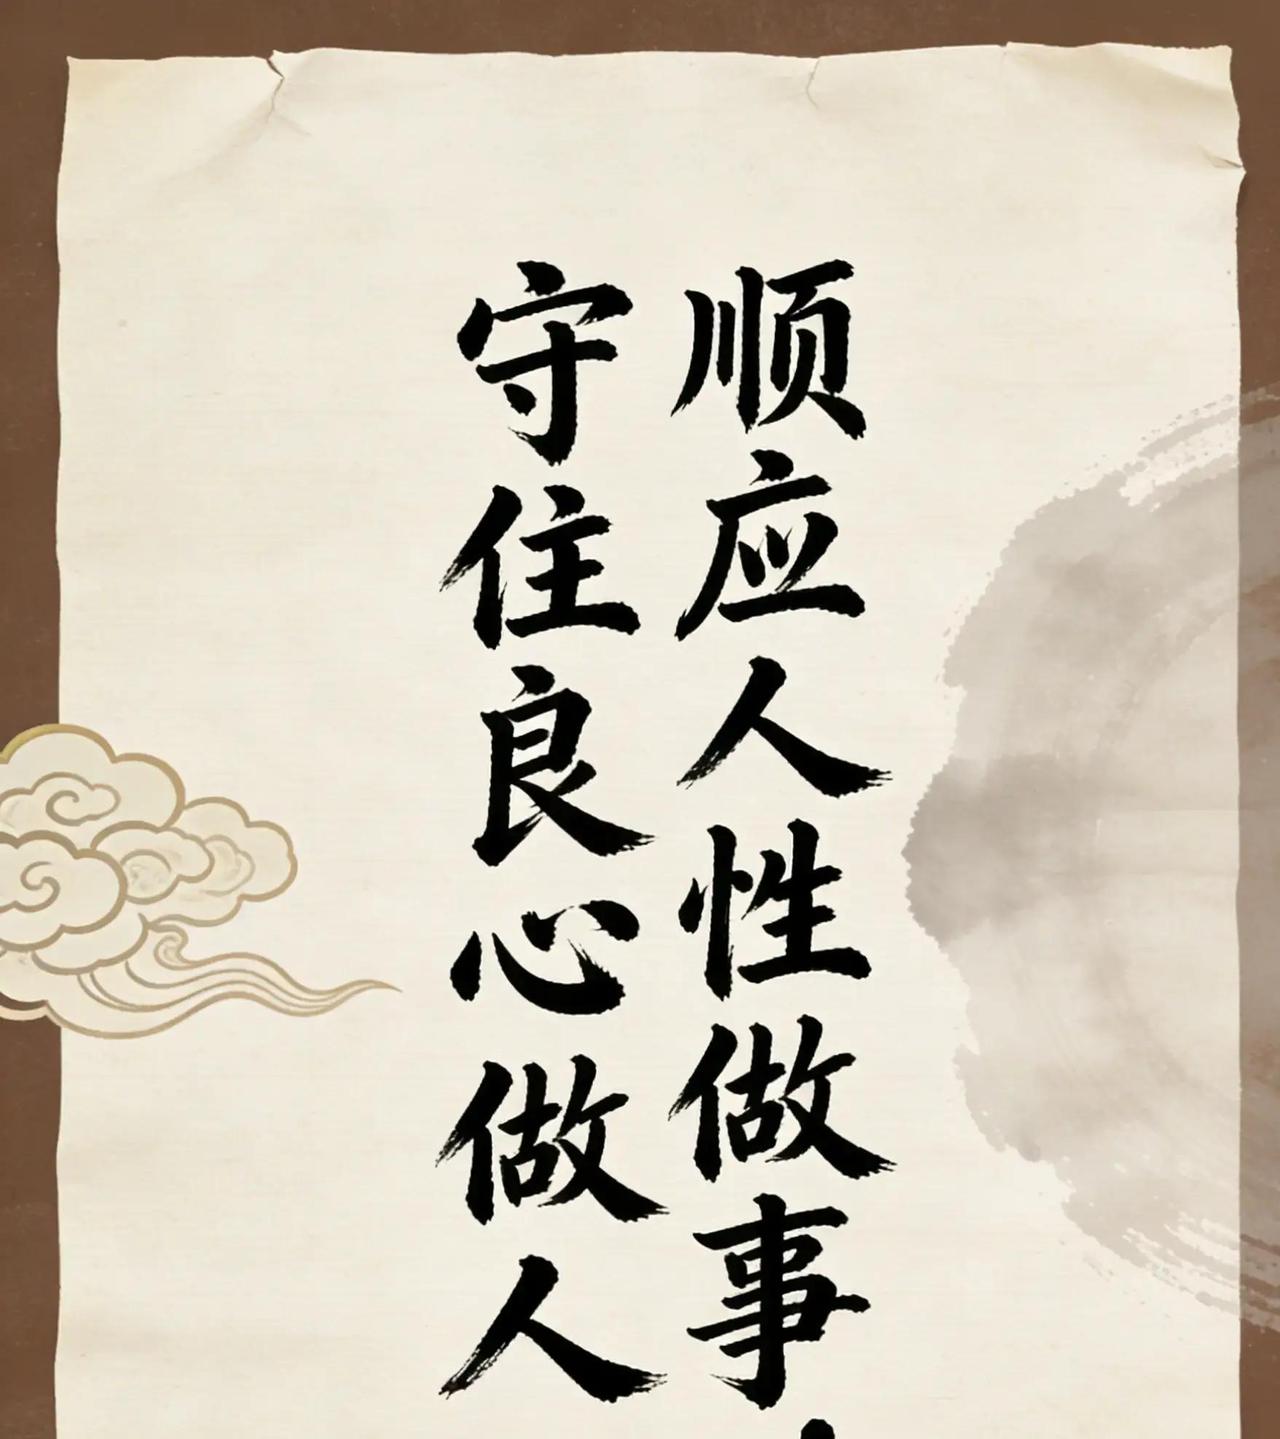 顺应人性做事
守住良心做人